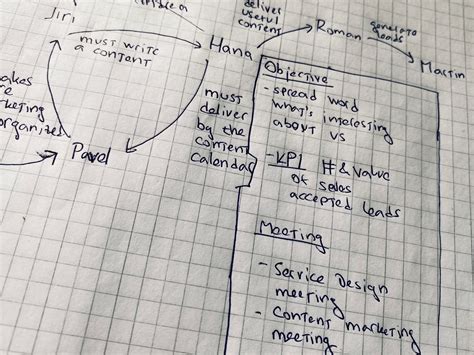 delivers
useful
content
Jiri
must write
a content
Hana
Roman
generate
leads
Martin
must
deliver
by the
content
calendar
organizes
Pavel
Objective
- spread word
what's interesting
about us
- KPI # & value
of sales
accepted leads
Meeting
- Service Design
meeting
- Content marketing
meeting